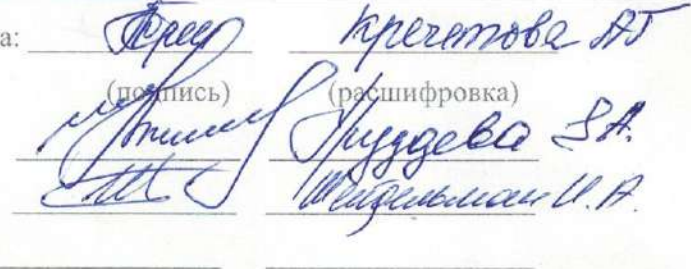 а: Кречетова АГ
(подпись) (расшифровка)
Груздева З.А.
Шейдельман И.А.